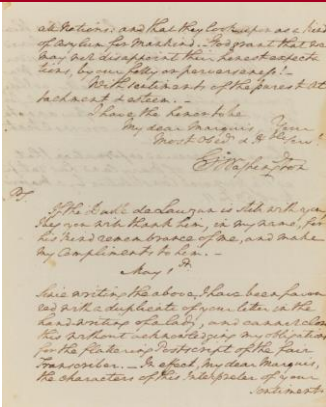 all Nations: and that they look upon us as a kind
of Asylum for Mankind. God grant that we
may not disappoint their honest expecta
tions, by our folly or perverseness!—
With sentiments of the purest at
tachment & esteem.—
I have the honor to be
My dear Marquis Your
Most Obed. & H
G Washington
PS.
If the Duke de Lauzun is still with you,
I beg you will thank him, in my name, for
his kind remembrance of me, and make
my Compliments to him.—
May 1st
Since writing the above, I have been favou
red with a duplicate of your letter in the
hand writing of a lady, and cannot close
this without acknowledging my obligations
for the flattering Postscript of the fair
Transcriber.— In effect, My dear Marquis,
the characters of this Interpreter of your
sentiments